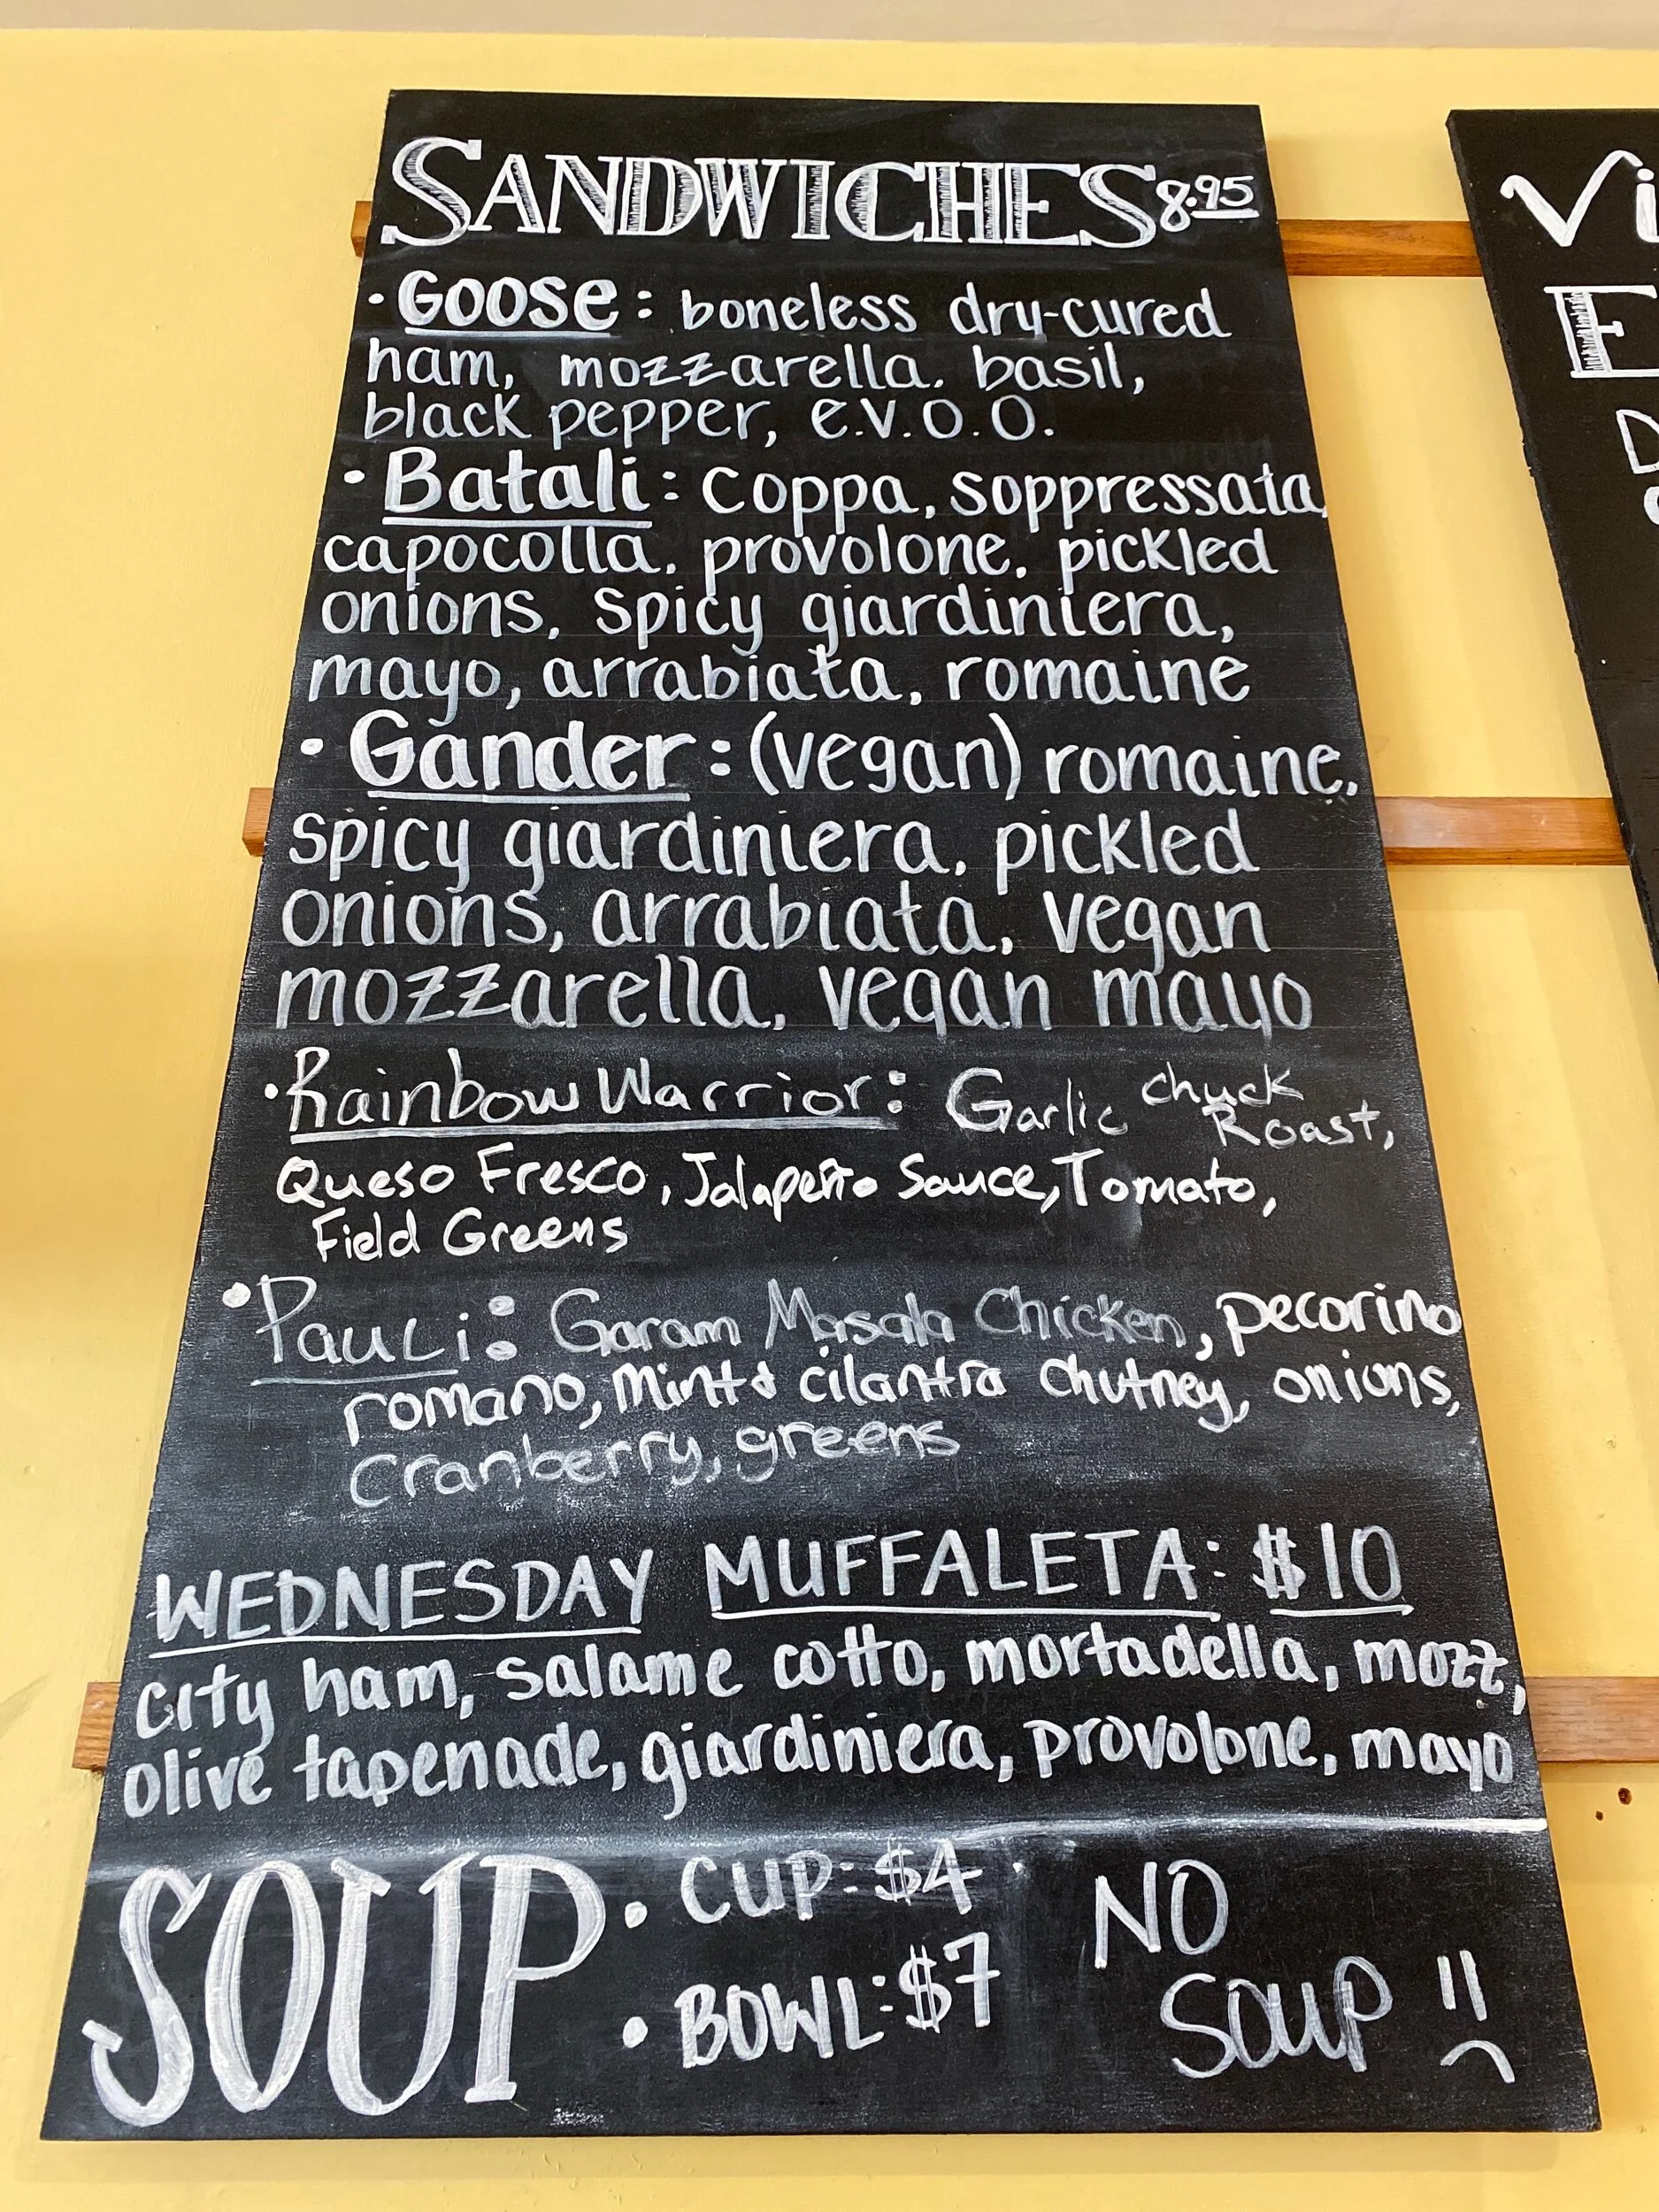 SANDWICHES 8.95
• Goose: boneless dry-cured
ham, mozzarella, basil,
black pepper, e.v.o.o.
• Batali: Coppa, soppressata,
capocolla, provolone, pickled
onions, spicy giardiniera,
mayo, arrabiata, romaine
• Gander: (vegan) romaine,
spicy giardiniera, pickled
onions, arrabiata, vegan
mozzarella, vegan mayo
• Rainbow Warrior: Garlic chuck
Roast,
Queso Fresco, Jalapeño Sauce, Tomato,
Field Greens
• Pauli: Garam Masala Chicken, pecorino
romano, mint & cilantra chutney, onions,
cranberry, greens
WEDNESDAY MUFFALETA: $10
city ham, salame cotto, mortadella, mozz,
olive tapenade, giardiniera, provolone, mayo
SOUP • CUP: $4
• BOWL: $7
NO
SOUP
Vi
E
D